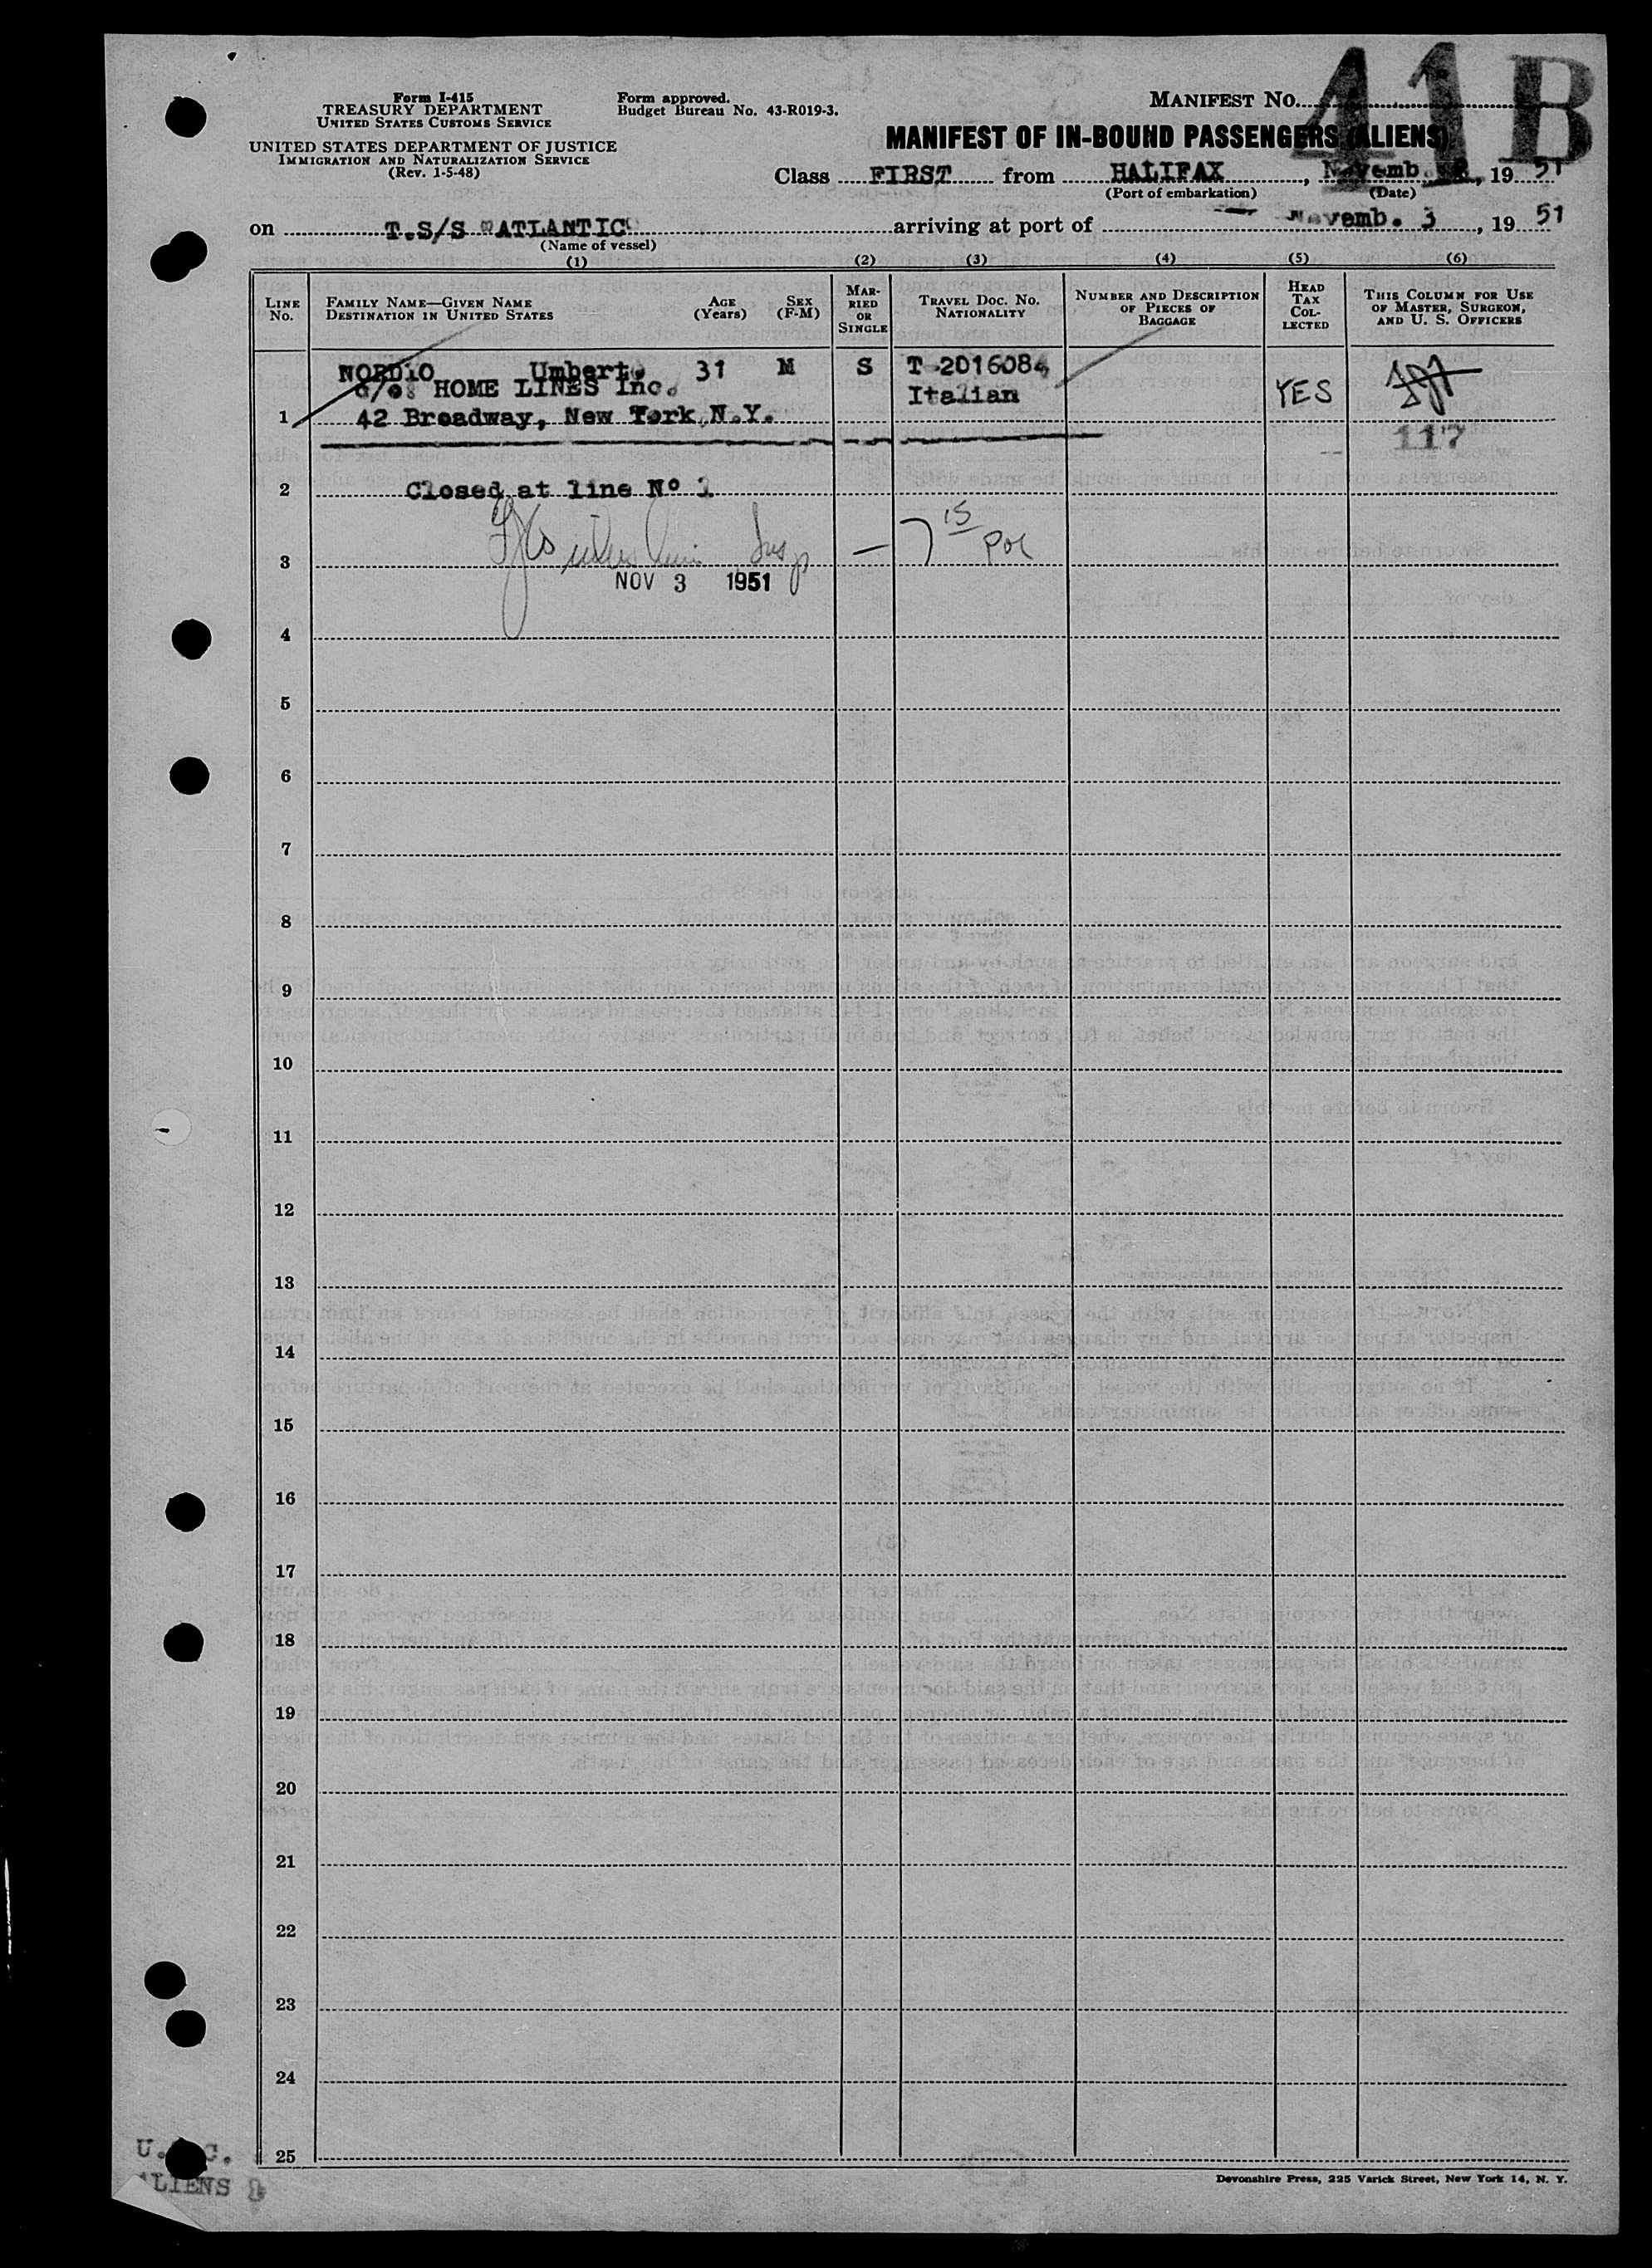 41 B
Form I-415
TREASURY DEPARTMENT
UNITED STATES CUSTOMS SERVICE
UNITED STATES DEPARTMENT OF JUSTICE
IMMIGRATION AND NATURALIZATION SERVICE
(Rev. 1-5-48)
Form approved.
Budget Bureau No. 43-R019-3.
MANIFEST NO.
MANIFEST OF IN-BOUND PASSENGERS (ALIENS)
Class FIRST from HALIFAX, Novemb. , 19 51
(Port of embarkation) (Date)
on T.S/S "ATLANTIC" arriving at port of Novemb. 3, 19 51
(Name of vessel)
(1) (2) (3) (4) (5) (6)
LINE NO.
FAMILY NAME—GIVEN NAME
DESTINATION IN UNITED STATES
AGE (Years)
SEX (F-M)
MARRIED OR SINGLE
TRAVEL DOC. NO.
NATIONALITY
NUMBER AND DESCRIPTION OF PIECES OF BAGGAGE
HEAD TAX COLLECTED
THIS COLUMN FOR USE OF MASTER, SURGEON, AND U. S. OFFICERS
NORDIO Umberto 31 M S T-2016084
c/o: HOME LINES Inc. Italian YES
1 42 Broadway, New York, N.Y.
117
2 Closed at line Nº 1
Insp — 7 15
3
NOV 3 1951
4
5
6
7
8
9
10
11
12
13
14
15
16
17
18
19
20
21
22
23
24
25
ALIENS 1
Devonshire Press, 225 Varick Street, New York 14, N. Y.